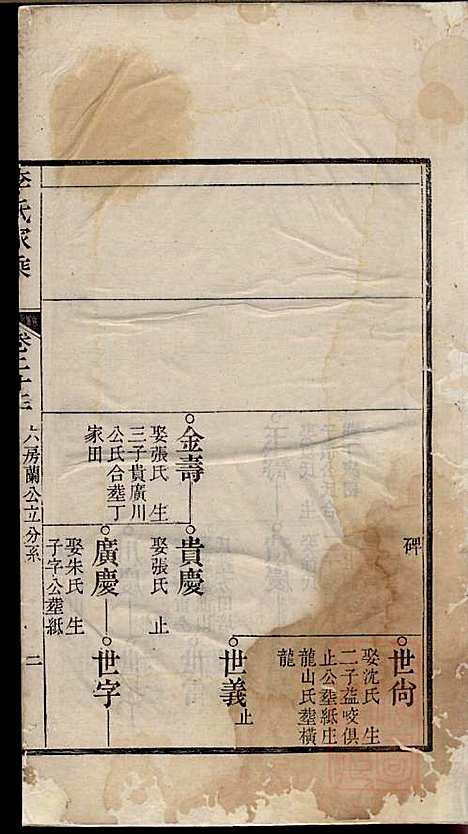 碑
世尙
娶沈氏生
二子益咬俱
止公塟紙庄
龍山氏塟橫
龍
世義
止
金壽
娶張氏生
三子貴廣川
公氏合塟丁
家田
貴慶
娶張氏止
廣慶
娶朱氏生
子字公塟紙
世字
李氏家乘
卷二十三
六房蘭公立分系
二